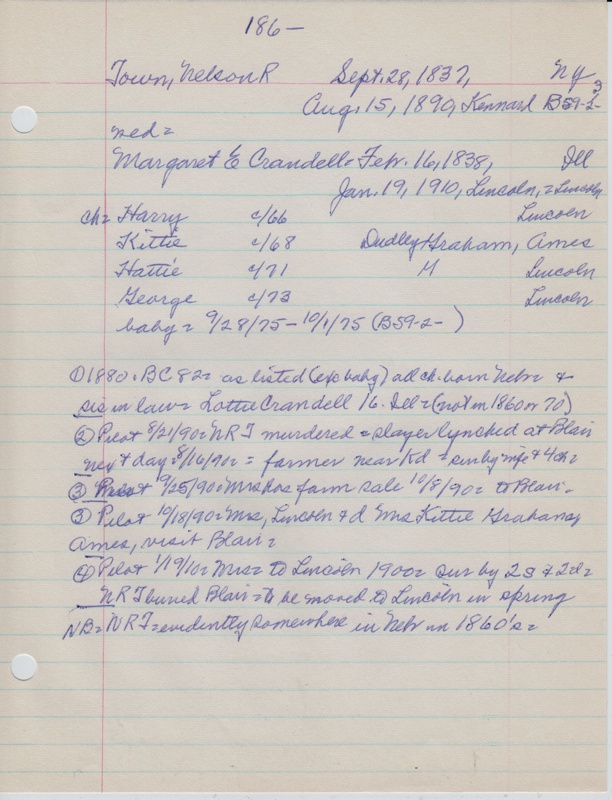 186—
Town, Nelson R Sept. 28, 1837, Ny
Aug. 15, 1890, Kennard B59-2-3
med =
Margaret E Crandell = Feb. 16, 1838, Ill
Jan. 19, 1910, Lincoln, = Lincoln
ch = Harry c/66 Lincoln
Kittie c/68 Dudley Graham, Ames
Hattie c/71 M Lincoln
George c/73 Lincoln
baby = 9/28/75 – 10/1/75 (B59-2- )
① 1880. BC 82 = as listed (exc baby) all ch. born Nebr = +
sis in law = Lottie Crandell 16. Ill = (not in 1860 or 70)
② Pilot 8/21/90 = NRT murdered = slayer lynched at Blair
nex + day = 8/16/90 = = farmer near Kd = sur by wife + 4 ch =
③ Pilot 9/25/90 = Mrs has farm sale 10/8/90 = to Blair.
③ Pilot 10/18/90 = Mrs, Lincoln + d Mrs Kittie Graham,
Ames, visit Blair =
④ Pilot 1/19/10 = Mrs = to Lincoln 1900 = sur by 2 s + 2 d =
NRT buried Blair = to be moved to Lincoln in spring
NB = NRT = evidently somewhere in Nebr in 1860's =